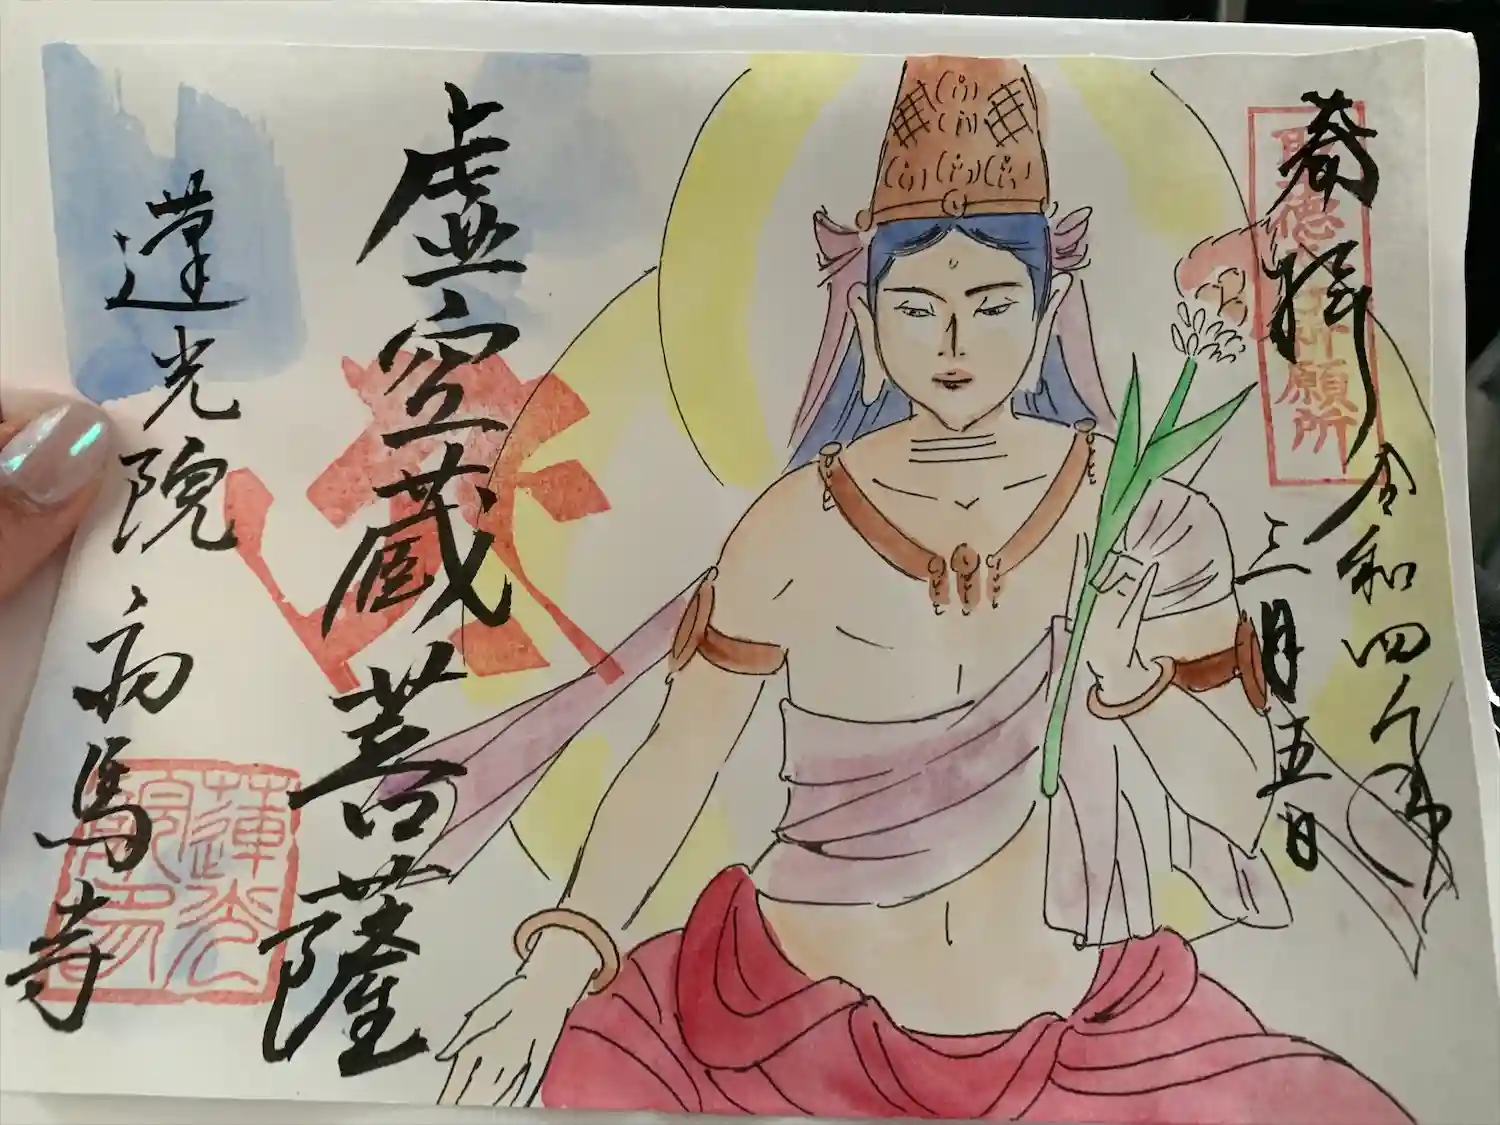 奉拝
聖徳
願所
令和四年
三月五日
虚空蔵菩薩
蓮光院初馬寺
蓮光